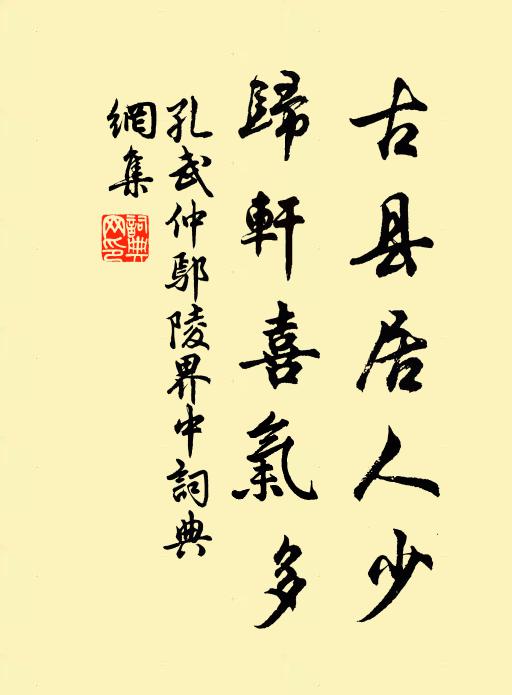 古县居人少
歸軒喜氣多
孔武仲鄢陵界中詞典
網集
詞典
网印